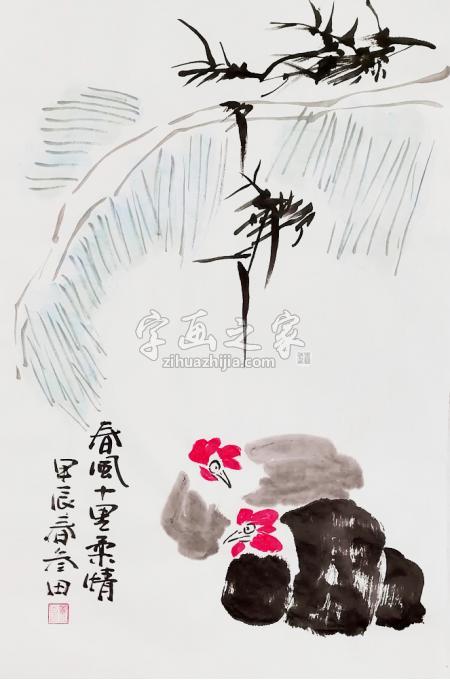 字画之家
zihuazhijia.com
春风十里柔情
甲辰春叁田